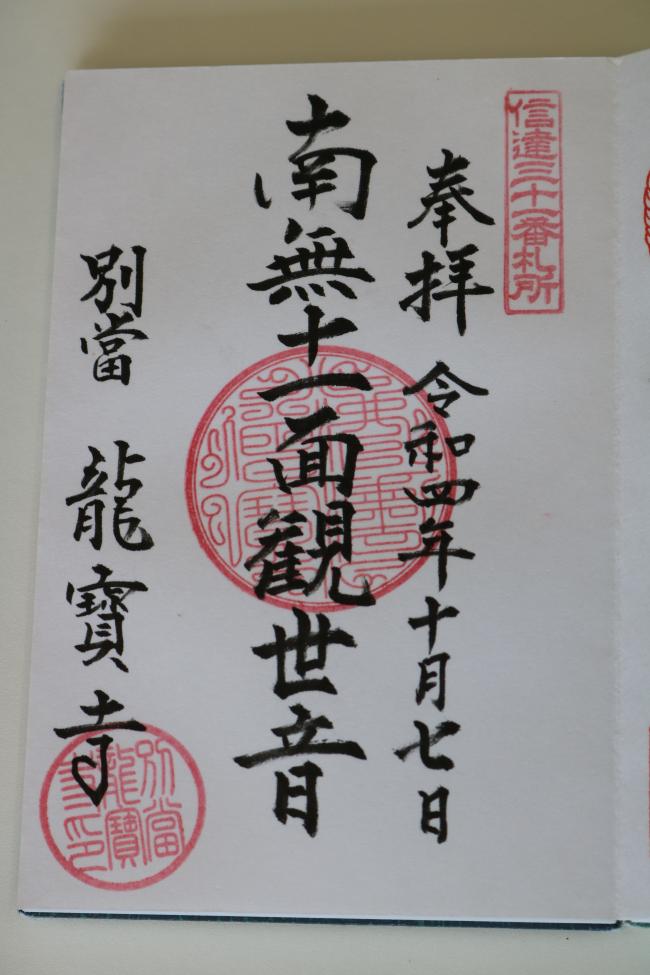 信達三十一番札所
奉拝 令和四年十月七日
南無十一面観世音
別當 龍寶寺
別當
龍寶
寺印